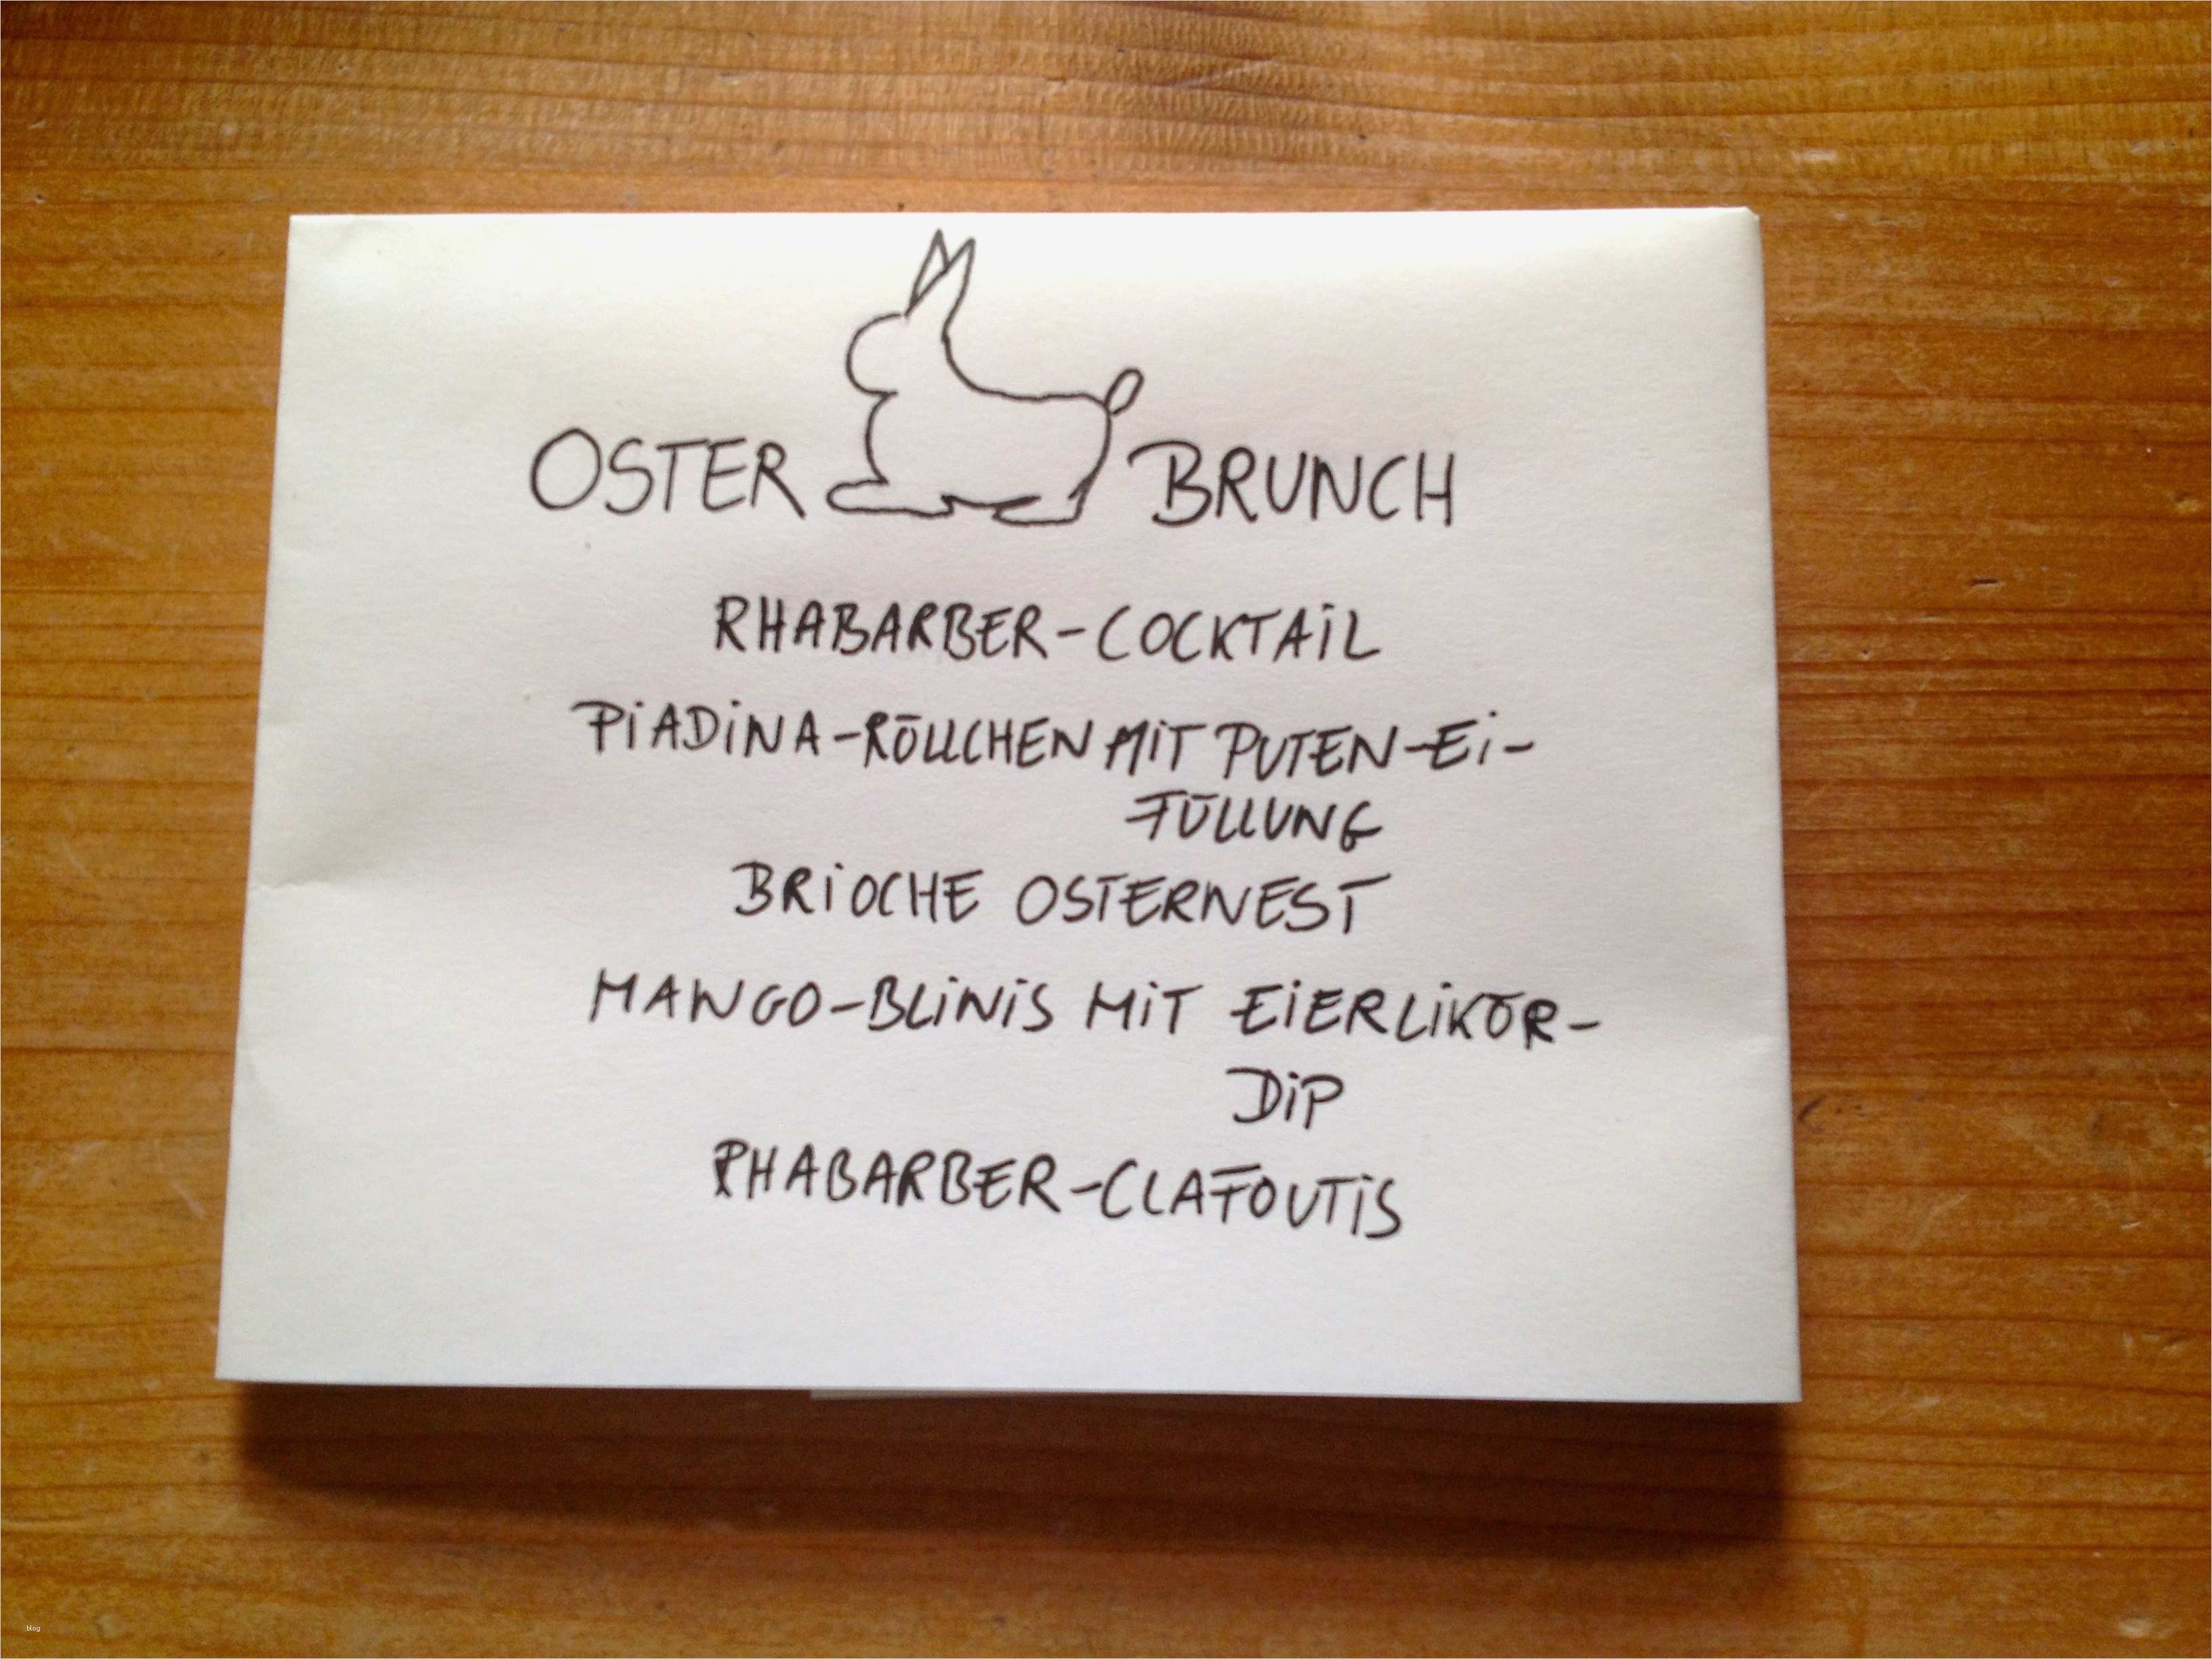 OSTER BRUNCH
RHABARBER-COCKTAIL
PIADINA-RÖLLCHEN MIT PUTEN-EI-
FÜLLUNG
BRIOCHE OSTERNEST
MANGO-BLINIS MIT EIERLIKÖR-
DIP
RHABARBER-CLAFOUTIS
blog